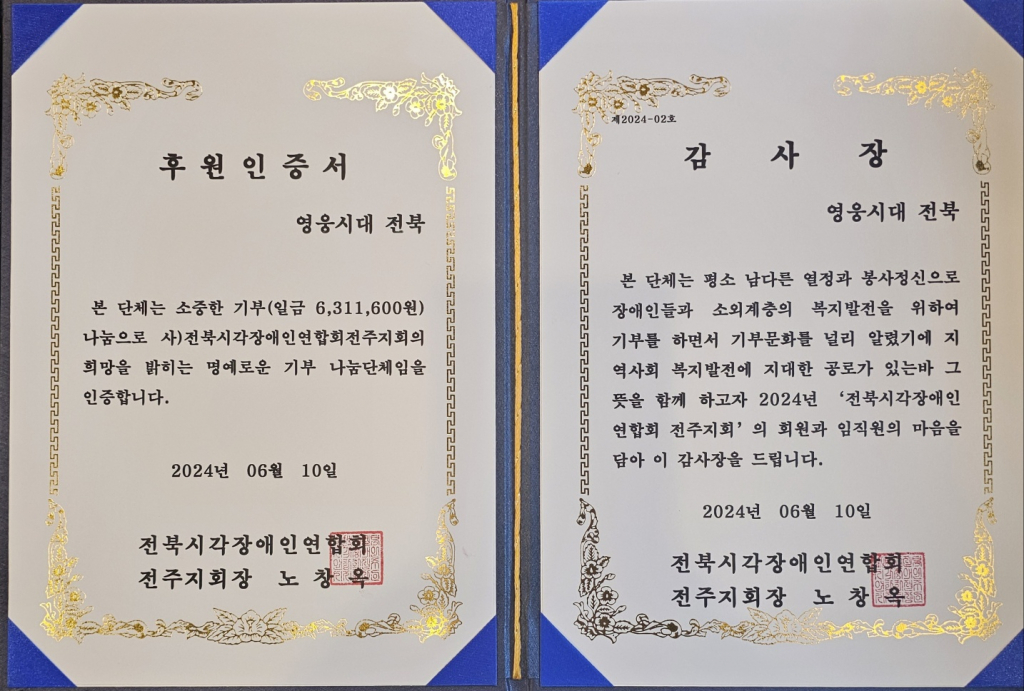 후원인증서
영웅시대 전북
본 단체는 소중한 기부(일금 6,311,600원)
나눔으로 사)전북시각장애인연합회전주지회의
희망을 밝히는 명예로운 기부 나눔단체임을
인증합니다.
2024년 06월 10일
전북시각장애인연합회
전주지회장 노창옥
제2024-02호
감 사 장
영웅시대 전북
본 단체는 평소 남다른 열정과 봉사정신으로
장애인들과 소외계층의 복지발전을 위하여
기부를 하면서 기부문화를 널리 알렸기에 지
역사회 복지발전에 지대한 공로가 있는바 그
뜻을 함께 하고자 2024년 ‘전북시각장애인
연합회 전주지회’ 의 회원과 임직원의 마음을
담아 이 감사장을 드립니다.
2024년 06월 10일
전북시각장애인연합회
전주지회장 노창옥